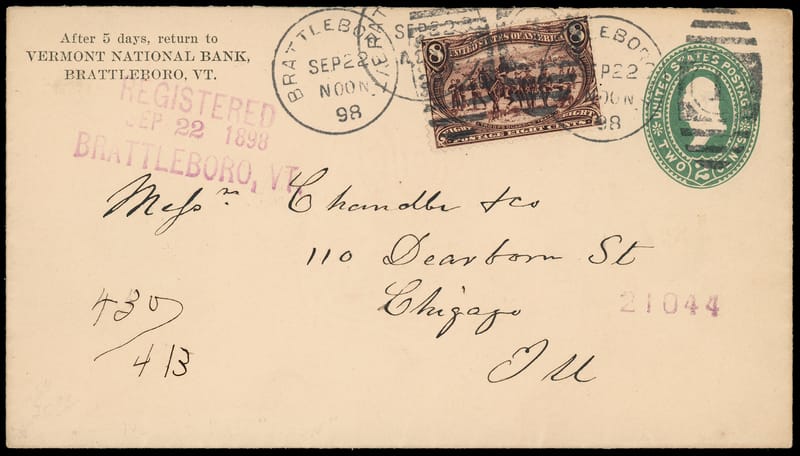 After 5 days, return to
VERMONT NATIONAL BANK,
BRATTLEBORO, VT.
REGISTERED
SEP 22 1898
BRATTLEBORO, VT.
BRATTLEBO
SEP 22
NOON
98
SEP 22
8 UNITED STATES OF AMERICA 8
POSTAGE EIGHT CENTS
LEBORO
SEP 22
NOON
98
UNITED STATES POSTAGE
TWO 2 CENTS
Messrs Chandler & Co
110 Dearborn St
Chigago
Ill
21044
430
413